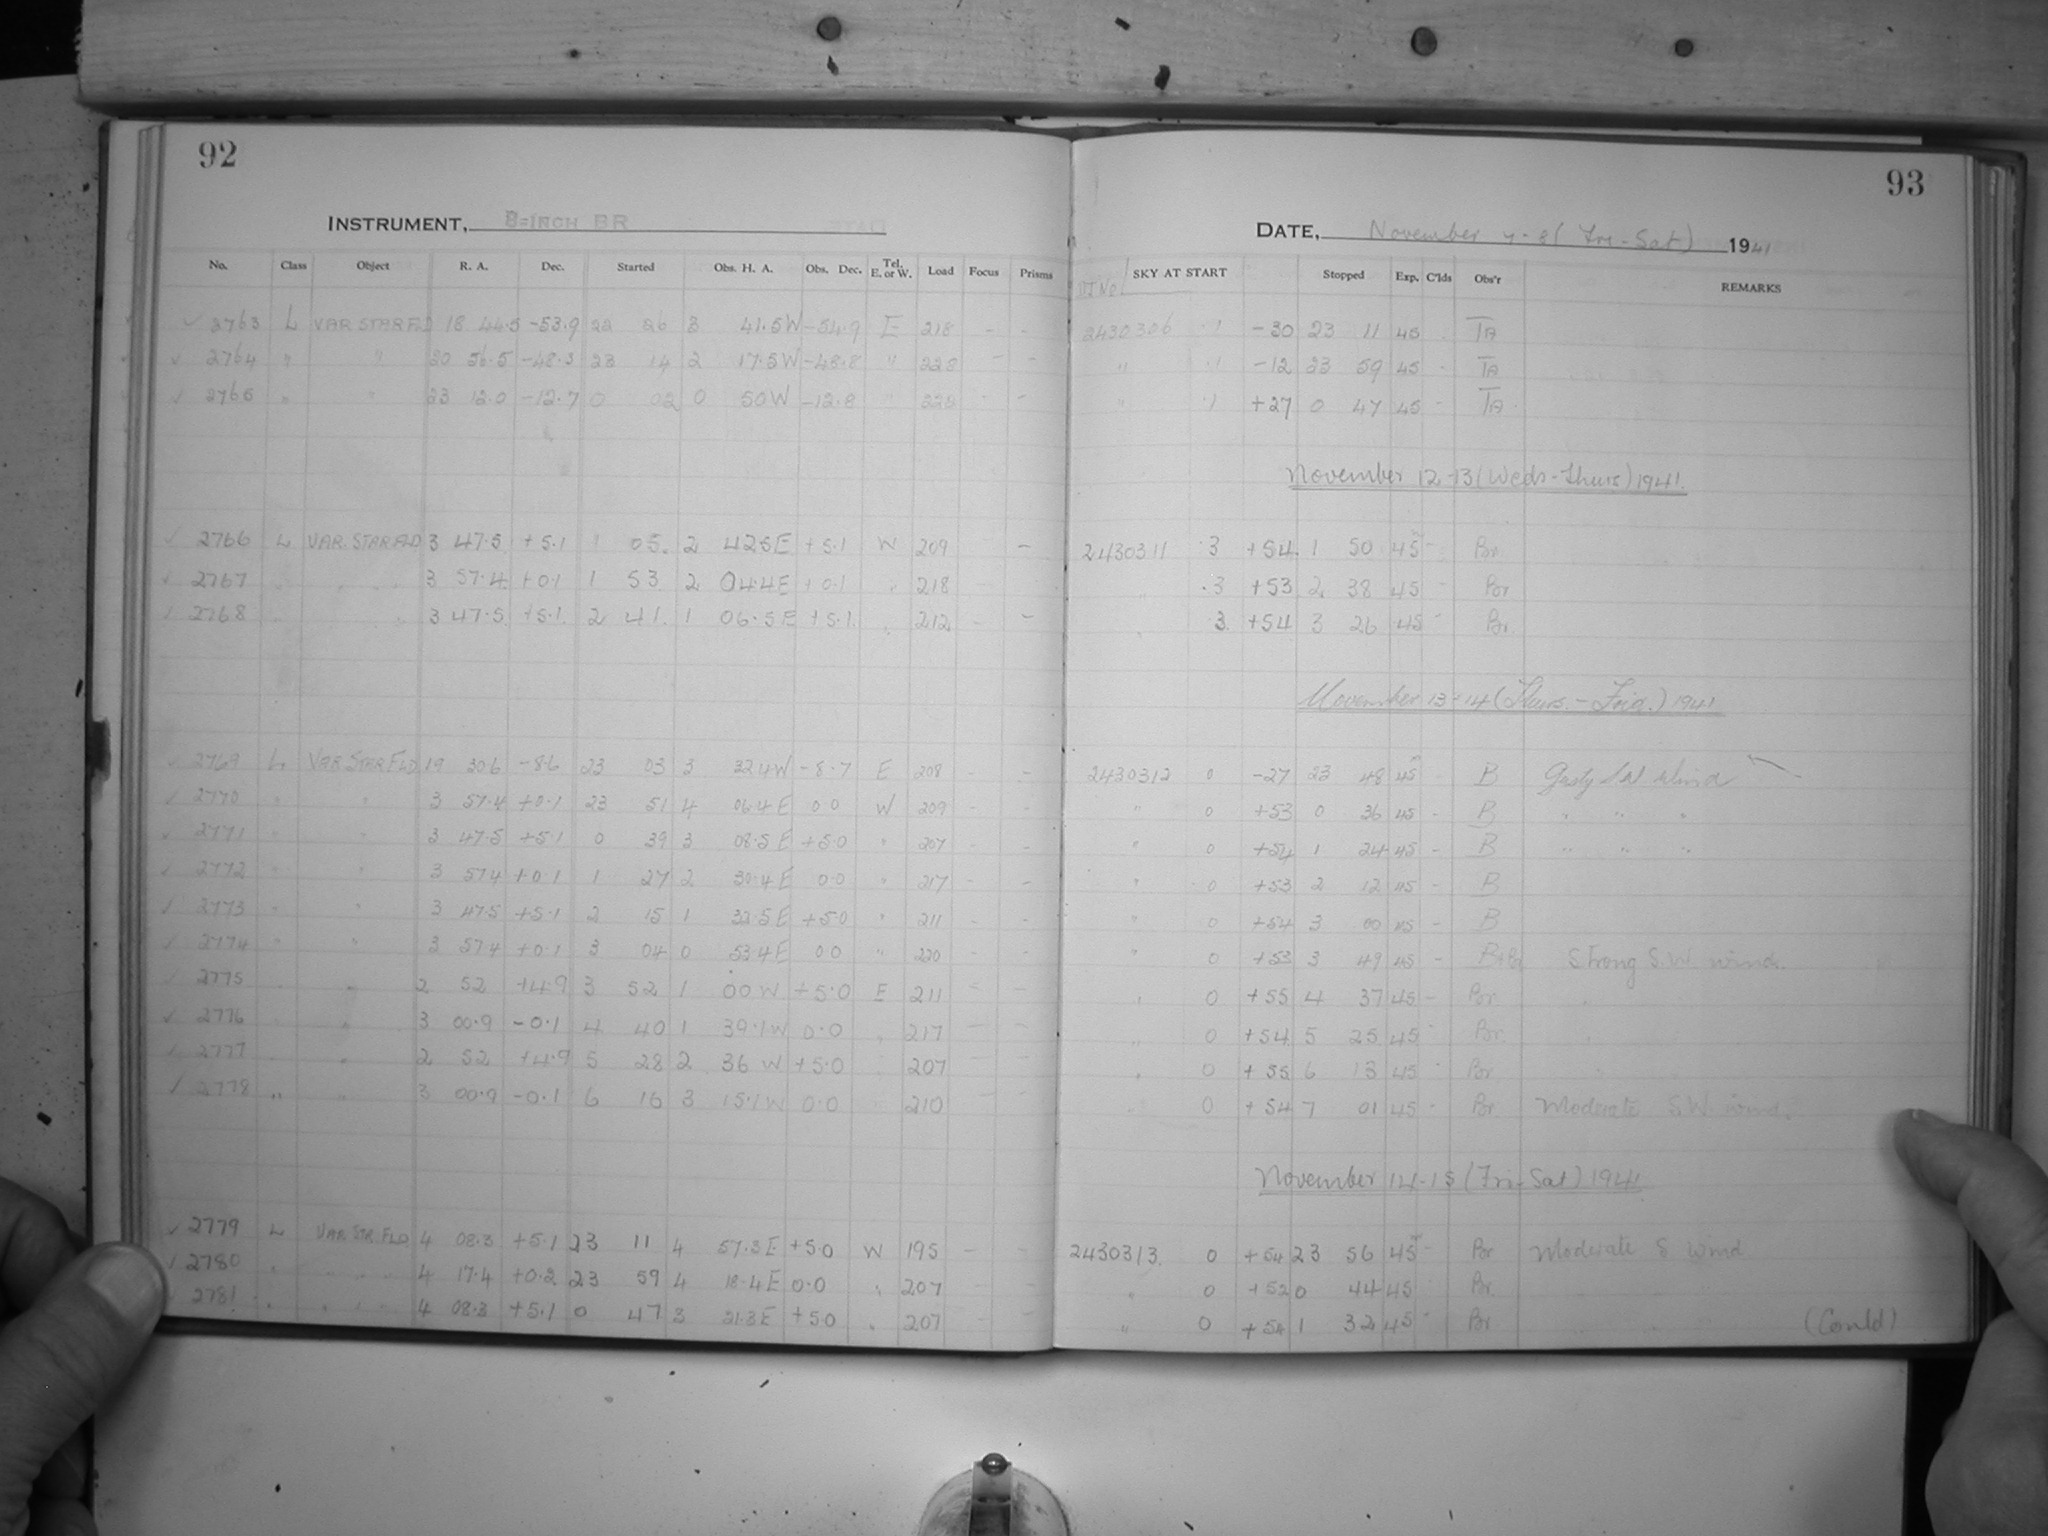 92
INSTRUMENT, 8-INCH BR
No. Class Object R. A. Dec. Started Obs. H. A. Obs. Dec. Tel. E. or W. Load Focus Prisms
✓ 2763 L VAR STAR FLD 18 44.5 -53.9 22 26 3 41.5W -54.9 E 218 - -
✓ 2764 " " 20 56.5 -48.3 23 14 2 17.5W -48.8 " 228 - -
✓ 2765 " " 23 12.0 -12.7 0 02 0 50W -12.8 " 229 - -
✓ 2766 L VAR. STAR FLD 3 47.5 +5.1 1 05. 2 42.5E +5.1 W 209 -
✓ 2767 3 57.4 +0.1 1 53 2 04.4E +0.1 " 218
✓ 2768 3 47.5 +5.1. 2 41. 1 06.5E +5.1. " 212 - -
✓ 2769 L VAR STAR FLD 19 30.6 -8.6 23 03 3 32.4W -8.7 E 208 - -
✓ 2770 " " 3 57.4 +0.1 23 51 4 06.4E 0.0 W 209 - -
✓ 2771 " " 3 47.5 +5.1 0 39 3 08.5E +5.0 " 207 - -
✓ 2772 " " 3 57.4 +0.1 1 27 2 30.4E 0.0 " 217 - -
✓ 2773 " " 3 47.5 +5.1 2 15 1 32.5E +5.0 " 211 - -
✓ 2774 " " 3 57.4 +0.1 3 04 0 53.4E 0.0 " 220 - -
✓ 2775 " 2 52 +4.9 3 52 1 00W +5.0 E 211 - -
✓ 2776 " 3 00.9 -0.1 4 40 1 39.1W 0.0 " 217 - -
✓ 2777 " 2 52 +4.9 5 28 2 36W +5.0 207 - -
✓ 2778 " " 3 00.9 -0.1 6 16 3 15.1W 0.0 " 210 - -
✓ 2779 L VAR. STR. FLD 4 08.3 +5.1 23 11 4 57.3E +5.0 W 195 - -
2780 " " " 4 17.4 +0.2 23 59 4 18.4E 0.0 " 207 - -
2781 " " " 4 08.3 +5.1 0 47 3 21.3E +5.0 " 207 - -
93
DATE, November 7-8 (Fri-Sat) 1941
SKY AT START Stopped Exp. C'lds Obs'r REMARKS
2430306 .1 -30 23 11 45 TA
" .1 -12 23 59 45 - TA
" .1 +27 0 47 45 - TA.
November 12-13 (Weds-Thurs) 1941.
2430311 .3 +54. 1 50 45 - Br.
" .3 +53 2 38 45 - Br
" .3. +54 3 26 45 - Br.
November 13-14 (Thurs.-Frid.) 1941
2430312 0 -27 23 48 45 - B Gusty SW Wind
" 0 +53 0 36 45 - B " " "
" 0 +54 1 24 45 - B " " "
" 0 +53 2 12 45 - B
" 0 +54 3 00 45 - B
" 0 +53 3 49 45 - B+Br Strong S.W. wind.
" 0 +55 4 37 45 - Br. "
" 0 +54. 5 25 45 - Br. "
" 0 +55 6 13 45 - Br
" 0 +54 7 01 45 - Br Moderate S.W. wind.
November 14-15 (Fri-Sat) 1941.
2430313. 0 +54 23 56 45 - Br Moderate S. Wind
" 0 +52 0 44 45 Br.
" 0 +54 1 32 45 - Br.
(Contd)